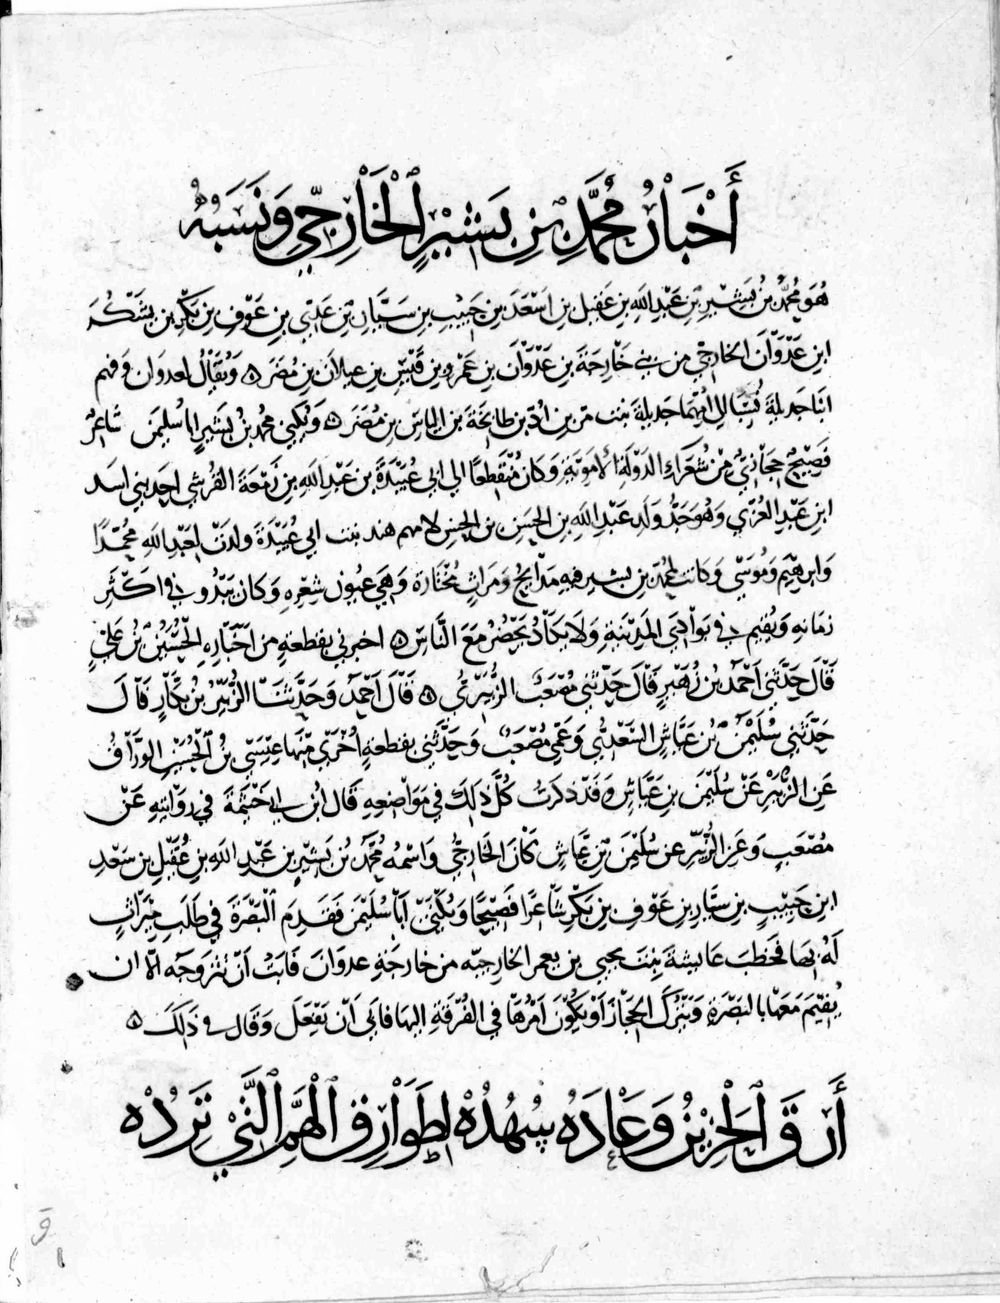 أَخْبَارُ مُحَمَّدِ بْنِ بَشِيْرٍ الْخَارِجِيِّ وَنَسَبُهُ
هُوَ مُحَمَّدُ بْنُ بَشِيْرِ بْنِ عَبْدِ اللهِ بْنِ عَقِيلِ بْنِ أَسْعَدَ بْنِ حَبِيْبِ بْنِ سَيَّارِ بْنِ عَدِيِّ بْنِ عَوْفِ بْنِ بَكْرِ بْنِ يَشْكُرَ
ابنِ عَدْوَانَ الخارجي من بني خَارِجَةَ بنِ عَدْوَانَ بنِ عَمْرِو بنِ قَيْسِ بنِ عيلانَ بنِ مُضَرَ ۝ وَيُقَالُ لعدوان وفهم
ابنا جديلةَ نُسِبَا الى امهما جديلة بنت مر بن ادّ بن طابخة بن الياس بن مُضَرَ ۝ وَيُكنى محمد بن بَشِيرٍ ابا سليمن شاعرٌ
فَصِيْحٌ حِجَازِيٌّ مِنْ شُعَرَاءِ الدَوْلَةِ الأموِيّةِ وَكَانَ مُنْقَطِعًا الى ابي عُبَيْدَةَ بن عَبْدِ اللهِ بنِ زَمْعَةَ القُرَشِي احد بني اسد
ابن عَبْدِ العُزَّي وَهُوَ جَدُّ وَلَدِ عَبْدِ اللهِ بن الحَسَنِ بن الحسنِ لامهم هند بنت ابي عُبَيْدَةَ ولدَتْ لعَبْدِ اللهِ مُحَمَّدًا
وَابرهيم وَمُوسَى وَكَانت لمحمّد بن بشير فيه مَدَايحُ وَمَراثٍ مُخْتَارَة وَهي عيون شعره وَكان يَبْدُو في اكْثَرِ
زمانه وَيقيم في بَوَادِي المَدِيْنَةِ وَلَا يَكَادُ يَحْضُرُ مَعَ النَّاسِ ۝ اخبرني بقطعةٍ من اَخْبَارِهِ الحُسَيْنُ بْنُ عَلِيٍّ
قَالَ حَدَّثَنِي اَحْمَدُ بن زُهَيْرٍ قَالَ حَدَّثَنِي مُصْعَبٌ الزُبَيْرِيُّ ۝ قَالَ اَحْمَدُ وَحَدَّثَنَا الزُبَيْرُ بن بَكَّارٍ قَالَ
حَدَّثَنِي سُلَيْمَنُ بْنُ عَيَّاشٍ السَعْدِيُّ وَعَمِّي مُصْعَبٌ وَحَدَّثَنِي بقطعةٍ اُخْرَى مِنْهَا عِيْسَى بْنُ الْحُسَيْنِ الوَرَّاقُ
عَنِ الزُبَيْرِ عَنْ سُلَيْمَنَ بنِ عَيَّاش وَقَدْ ذكرتُ كُلَّ ذلِكَ في مَوَاضعِهِ قَالَ ابْن ابي خَيْثَمَةَ في رِوَايتِهِ عَنْ
مُصْعَبٍ وَعَنِ الزُبَيْرِ عن سُلَيْمَنَ بْنِ عَيَّاش كَانَ الخَارجِيُّ وَاسْمُهُ مُحَمَّدُ بْنُ بَشِيْرِ بن عَبْدِ اللهِ بنِ عُقَيْلِ بن سَعْدِ
ابن حَبِيْبِ بن سَيَّارِ بنِ عَوْفِ بن بَكْرٍ شَاعِرًا فَصِيْحًا وَيُكْنَىَ اَبَا سُلَيْمَنَ فَقَدِمَ الْبَصْرَةَ فِي طَلَبِ مِيْرَاثٍ
لَهُ بِهَا فَخطَبَ عَايشةَ بنت يحيى بن يعمر الخارجيّه من خارجةِ عدوانَ فَابَتْ اَنْ تتزوجَه الّا ان
يُقِيْمَ مَعَهَا بالبَصْرَةِ وَيَتْرُكَ الحِجَازَ اَوْ يكُونَ اَمْرُهَا فِي الفُرْقَةِ اليهَا فابَى اَنْ يَفْعَلَ وَقَال في ذَلِكَ ۝
أَرِقَ الْحَزِيْنُ وَعَادَهُ سُهُدُهْ لِطَوَارِقِ الْهَمِّ الَّتِيْ تَرِدُهْ